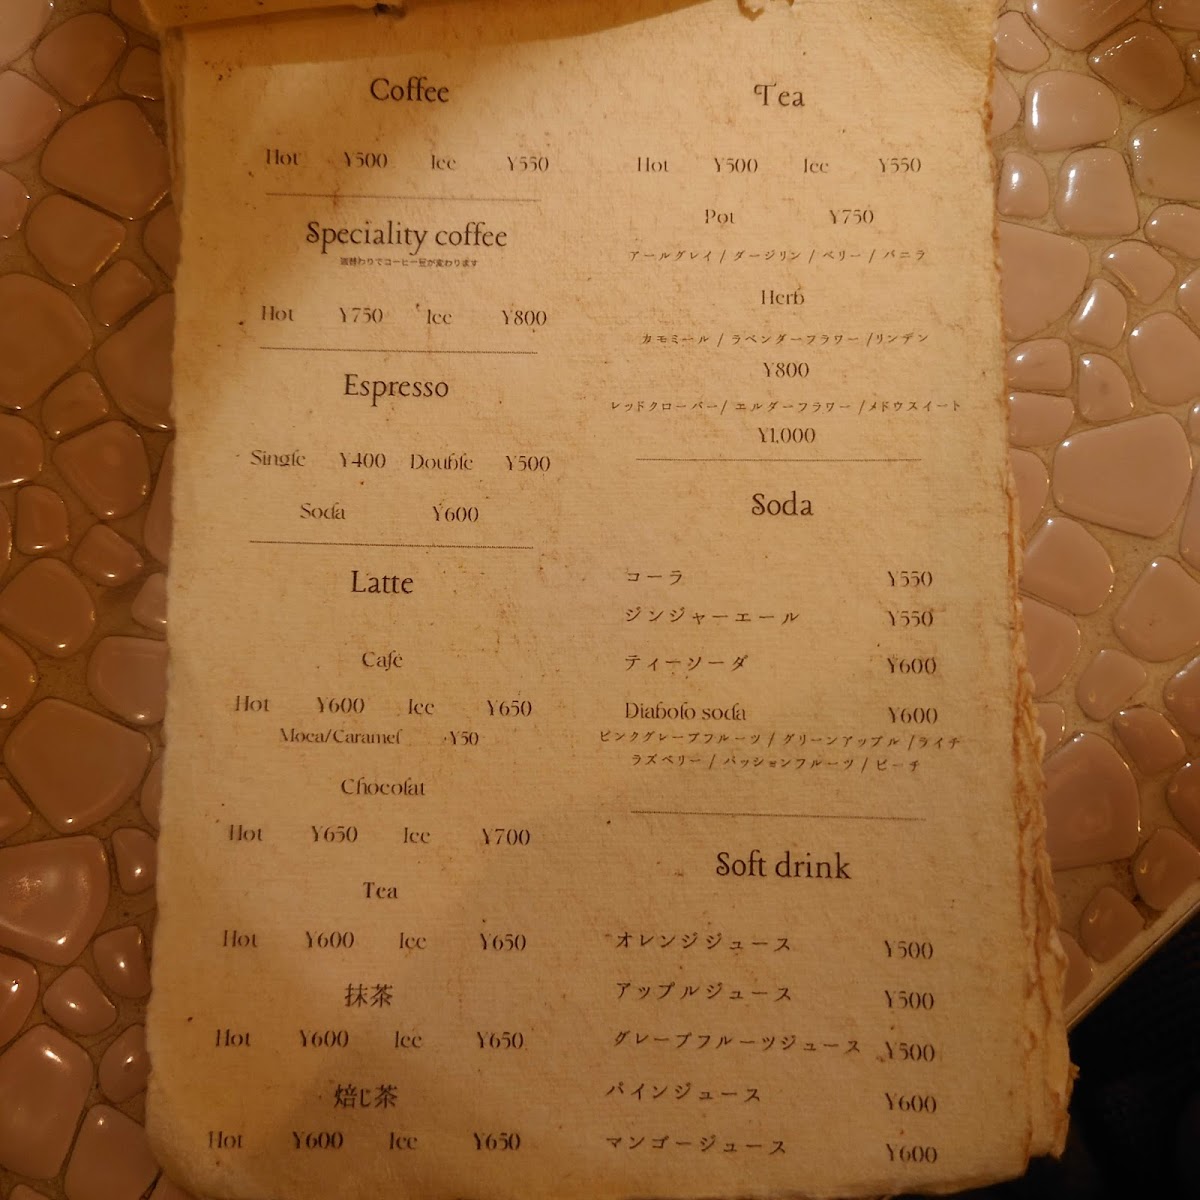 Coffee
Hot ¥500 Ice ¥550
Speciality coffee
週替わりでコーヒー豆が変わります
Hot ¥750 Ice ¥800
Espresso
Single ¥400 Double ¥500
Soda ¥600
Latte
Cafe
Hot ¥600 Ice ¥650
Moca/Caramel +¥50
Chocolat
Hot ¥650 Ice ¥700
Tea
Hot ¥600 Ice ¥650
抹茶
Hot ¥600 Ice ¥650
焙じ茶
Hot ¥600 Ice ¥650
Tea
Hot ¥500 Ice ¥550
Pot ¥750
アールグレイ / ダージリン / ベリー / バニラ
Herb
カモミール / ラベンダーフラワー /リンデン
¥800
レッドクローバー/ エルダーフラワー /メドウスイート
¥1,000
Soda
コーラ ¥550
ジンジャーエール ¥550
ティーソーダ ¥600
Diabolo soda ¥600
ピンクグレープフルーツ / グリーンアップル /ライチ
ラズベリー / パッションフルーツ / ピーチ
Soft drink
オレンジジュース ¥500
アップルジュース ¥500
グレープフルーツジュース ¥500
パインジュース ¥600
マンゴージュース ¥600